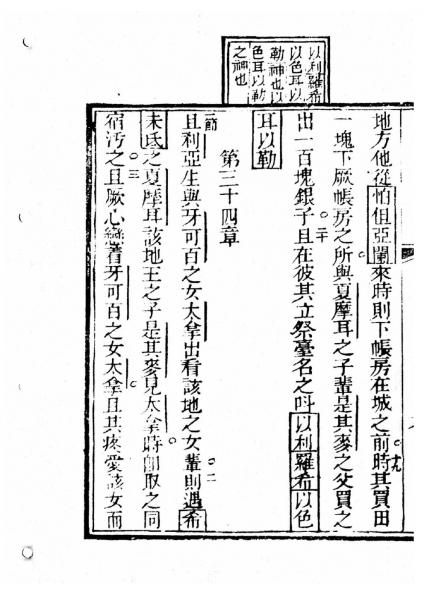 以利羅希
以色耳以
勒神也以
色耳以勒
之神也
地方他從怕但亞闌來時則下帳房在城之前時其買田
十九
一塊下厥帳房之所與夏摩耳之子輩是其麥之父買之
出一百塊銀子且在彼其立祭臺名之呌以利羅希以色
二十
耳以勒
第三十四章
一節
且利亞生與牙可百之女太拿出看該地之女輩則遇希
二
未氏之夏摩耳該地王之子是其麥見太拿時卽取之同
三
宿汚之且厥心戀著牙可百之女太拿且其疼愛該女而